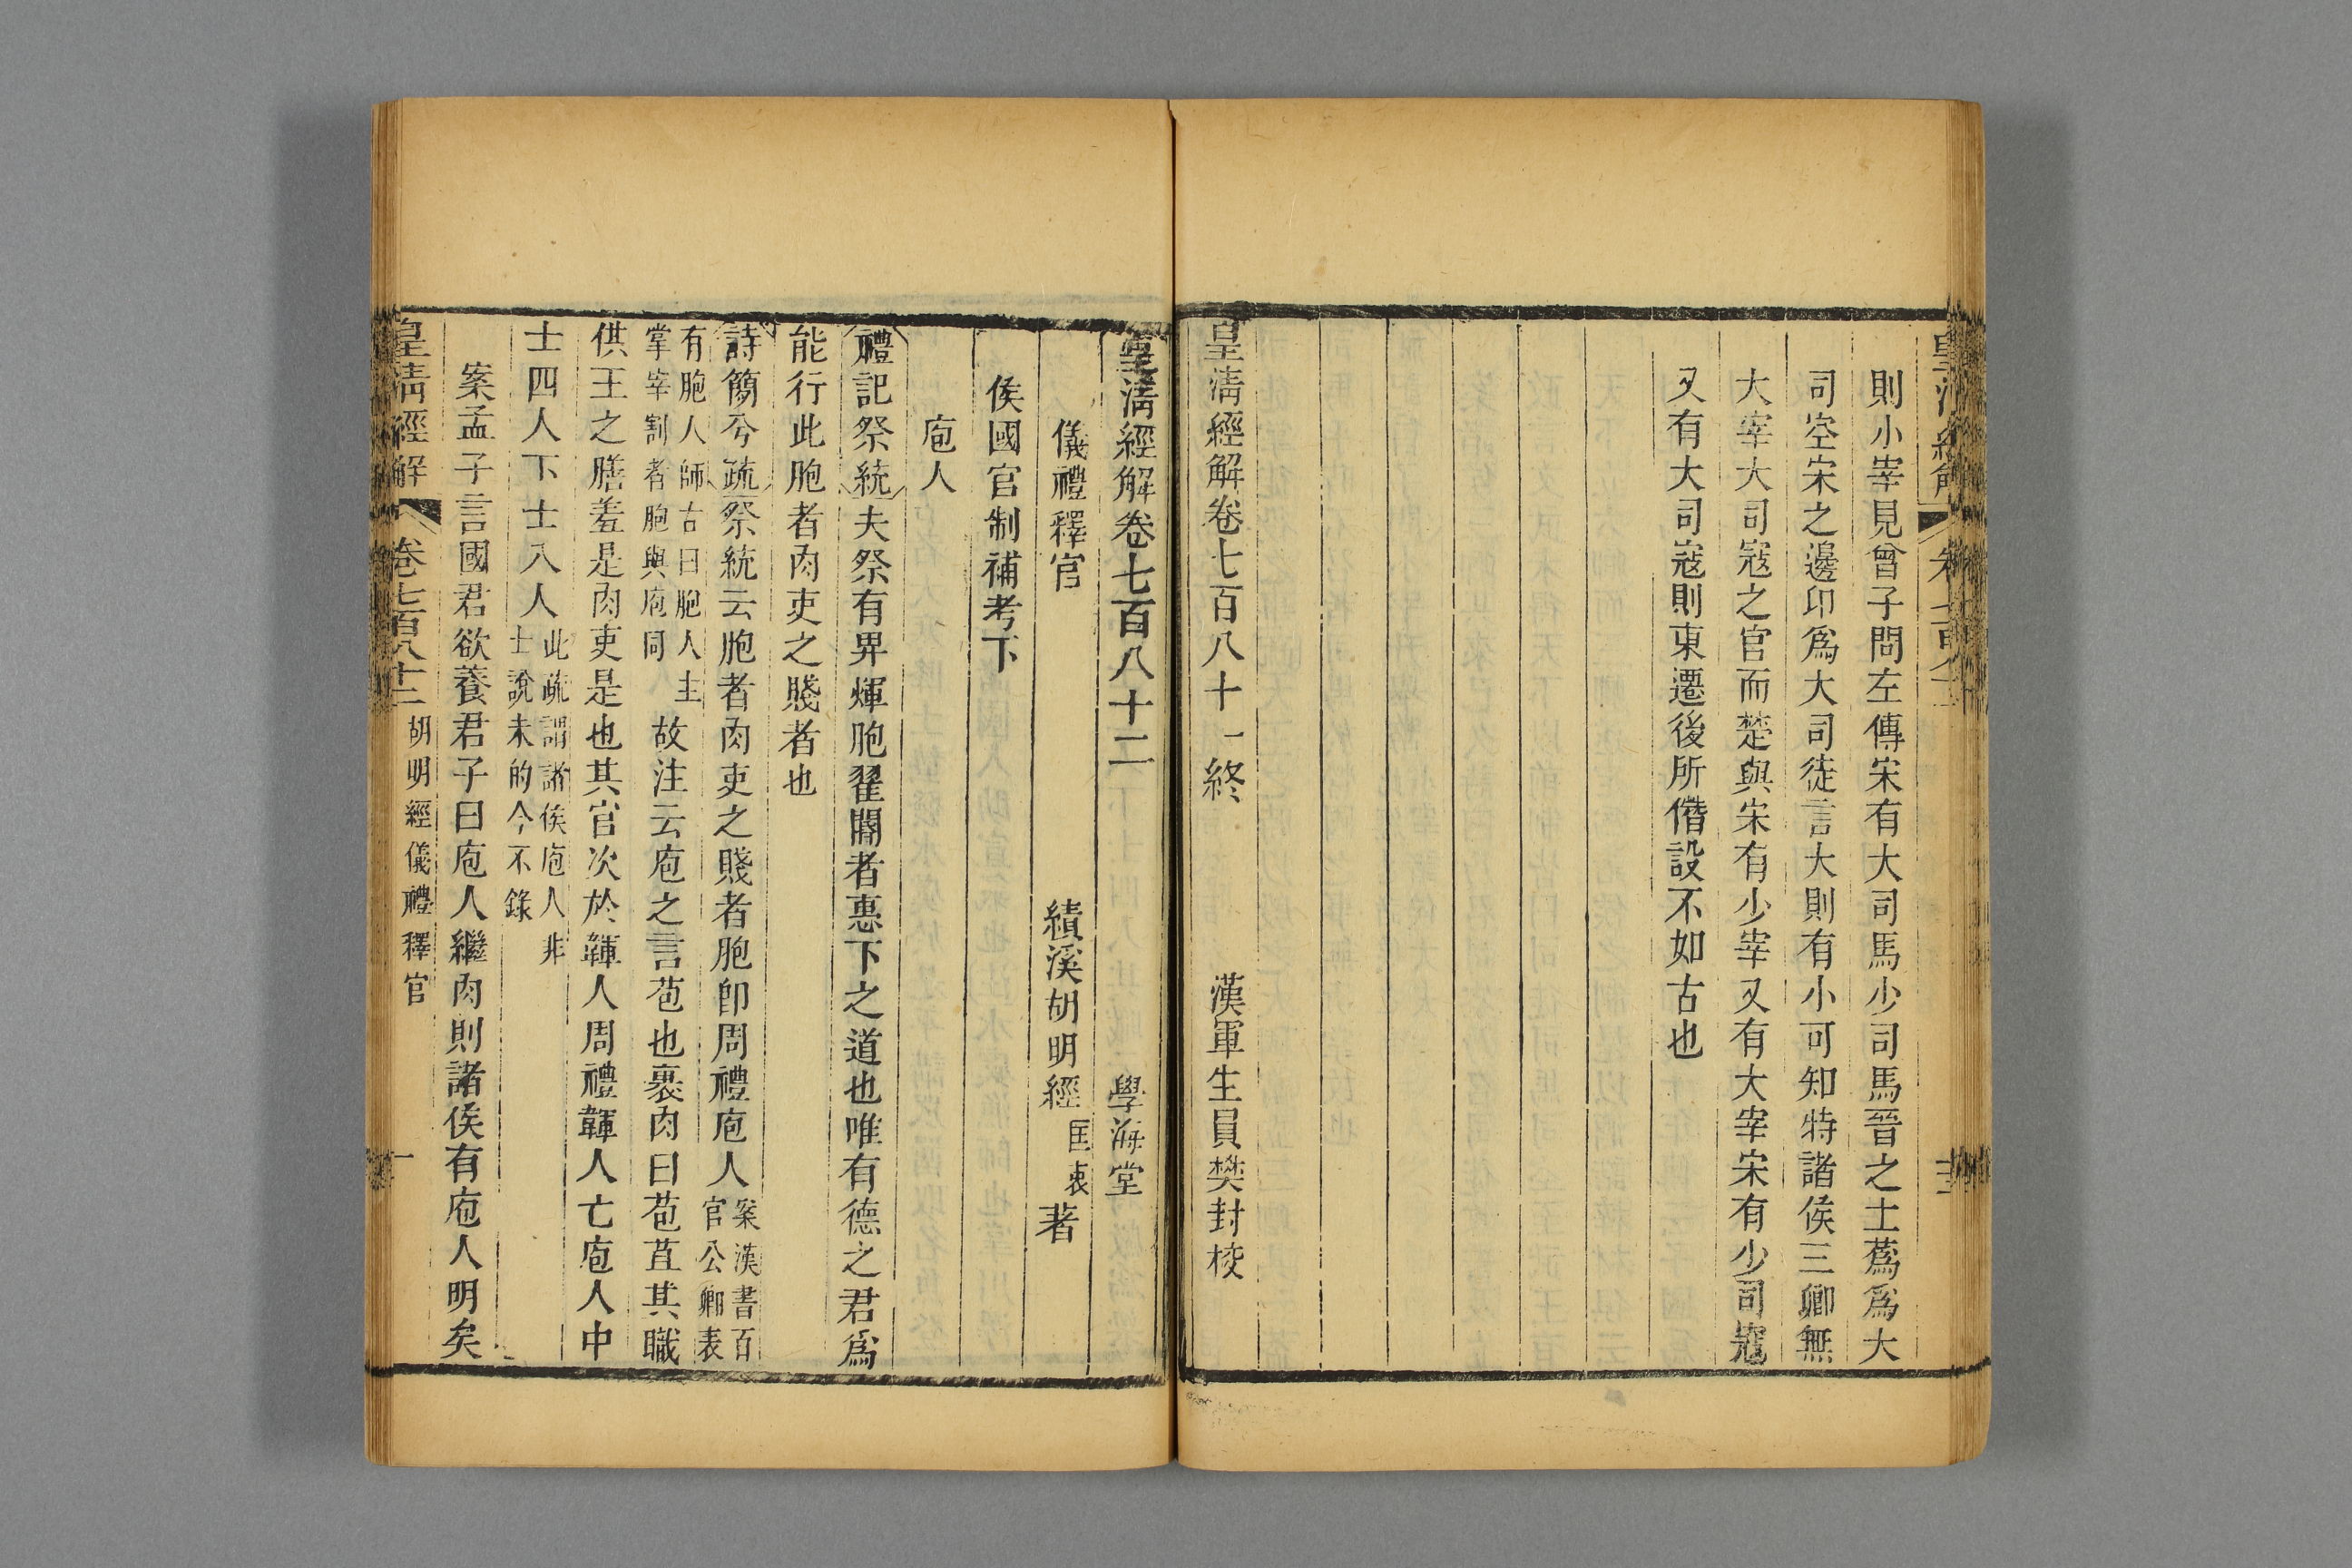 則小宰見曾子問左傳宋有大司馬少司馬晉之士蒍爲大
司空宋之邊卬爲大司徒言大則有小可知特諸侯三卿無
大宰大司寇之官而楚與宋有少宰又有大宰宋有少司寇
又有大司寇則東遷後所僭設不如古也
皇清經解卷七百八十一終
漢軍生員樊封校
皇清經解卷七百八十二
學海堂
儀禮釋官
績溪胡明經匡衷著
侯國官制補考下
庖人
禮記祭統夫祭有畀煇胞翟閽者惠下之道也唯有德之君爲
能行此胞者肉吏之賤者也
詩簡兮疏祭統云胞者肉吏之賤者胞卽周禮庖人案漢書百官公卿表
有胞人師古曰胞人主掌宰割者胞與庖同故注云庖之言苞也裹肉曰苞苴其職
供王之膳羞是肉吏是也其官次於韗人周禮韗人亡庖人中
士四人下士八人此疏謂諸侯庖人非士說未的今不錄
案孟子言國君欲養君子曰庖人繼肉則諸侯有庖人明矣
皇清經解
卷七百八十二
胡明經儀禮釋官
一